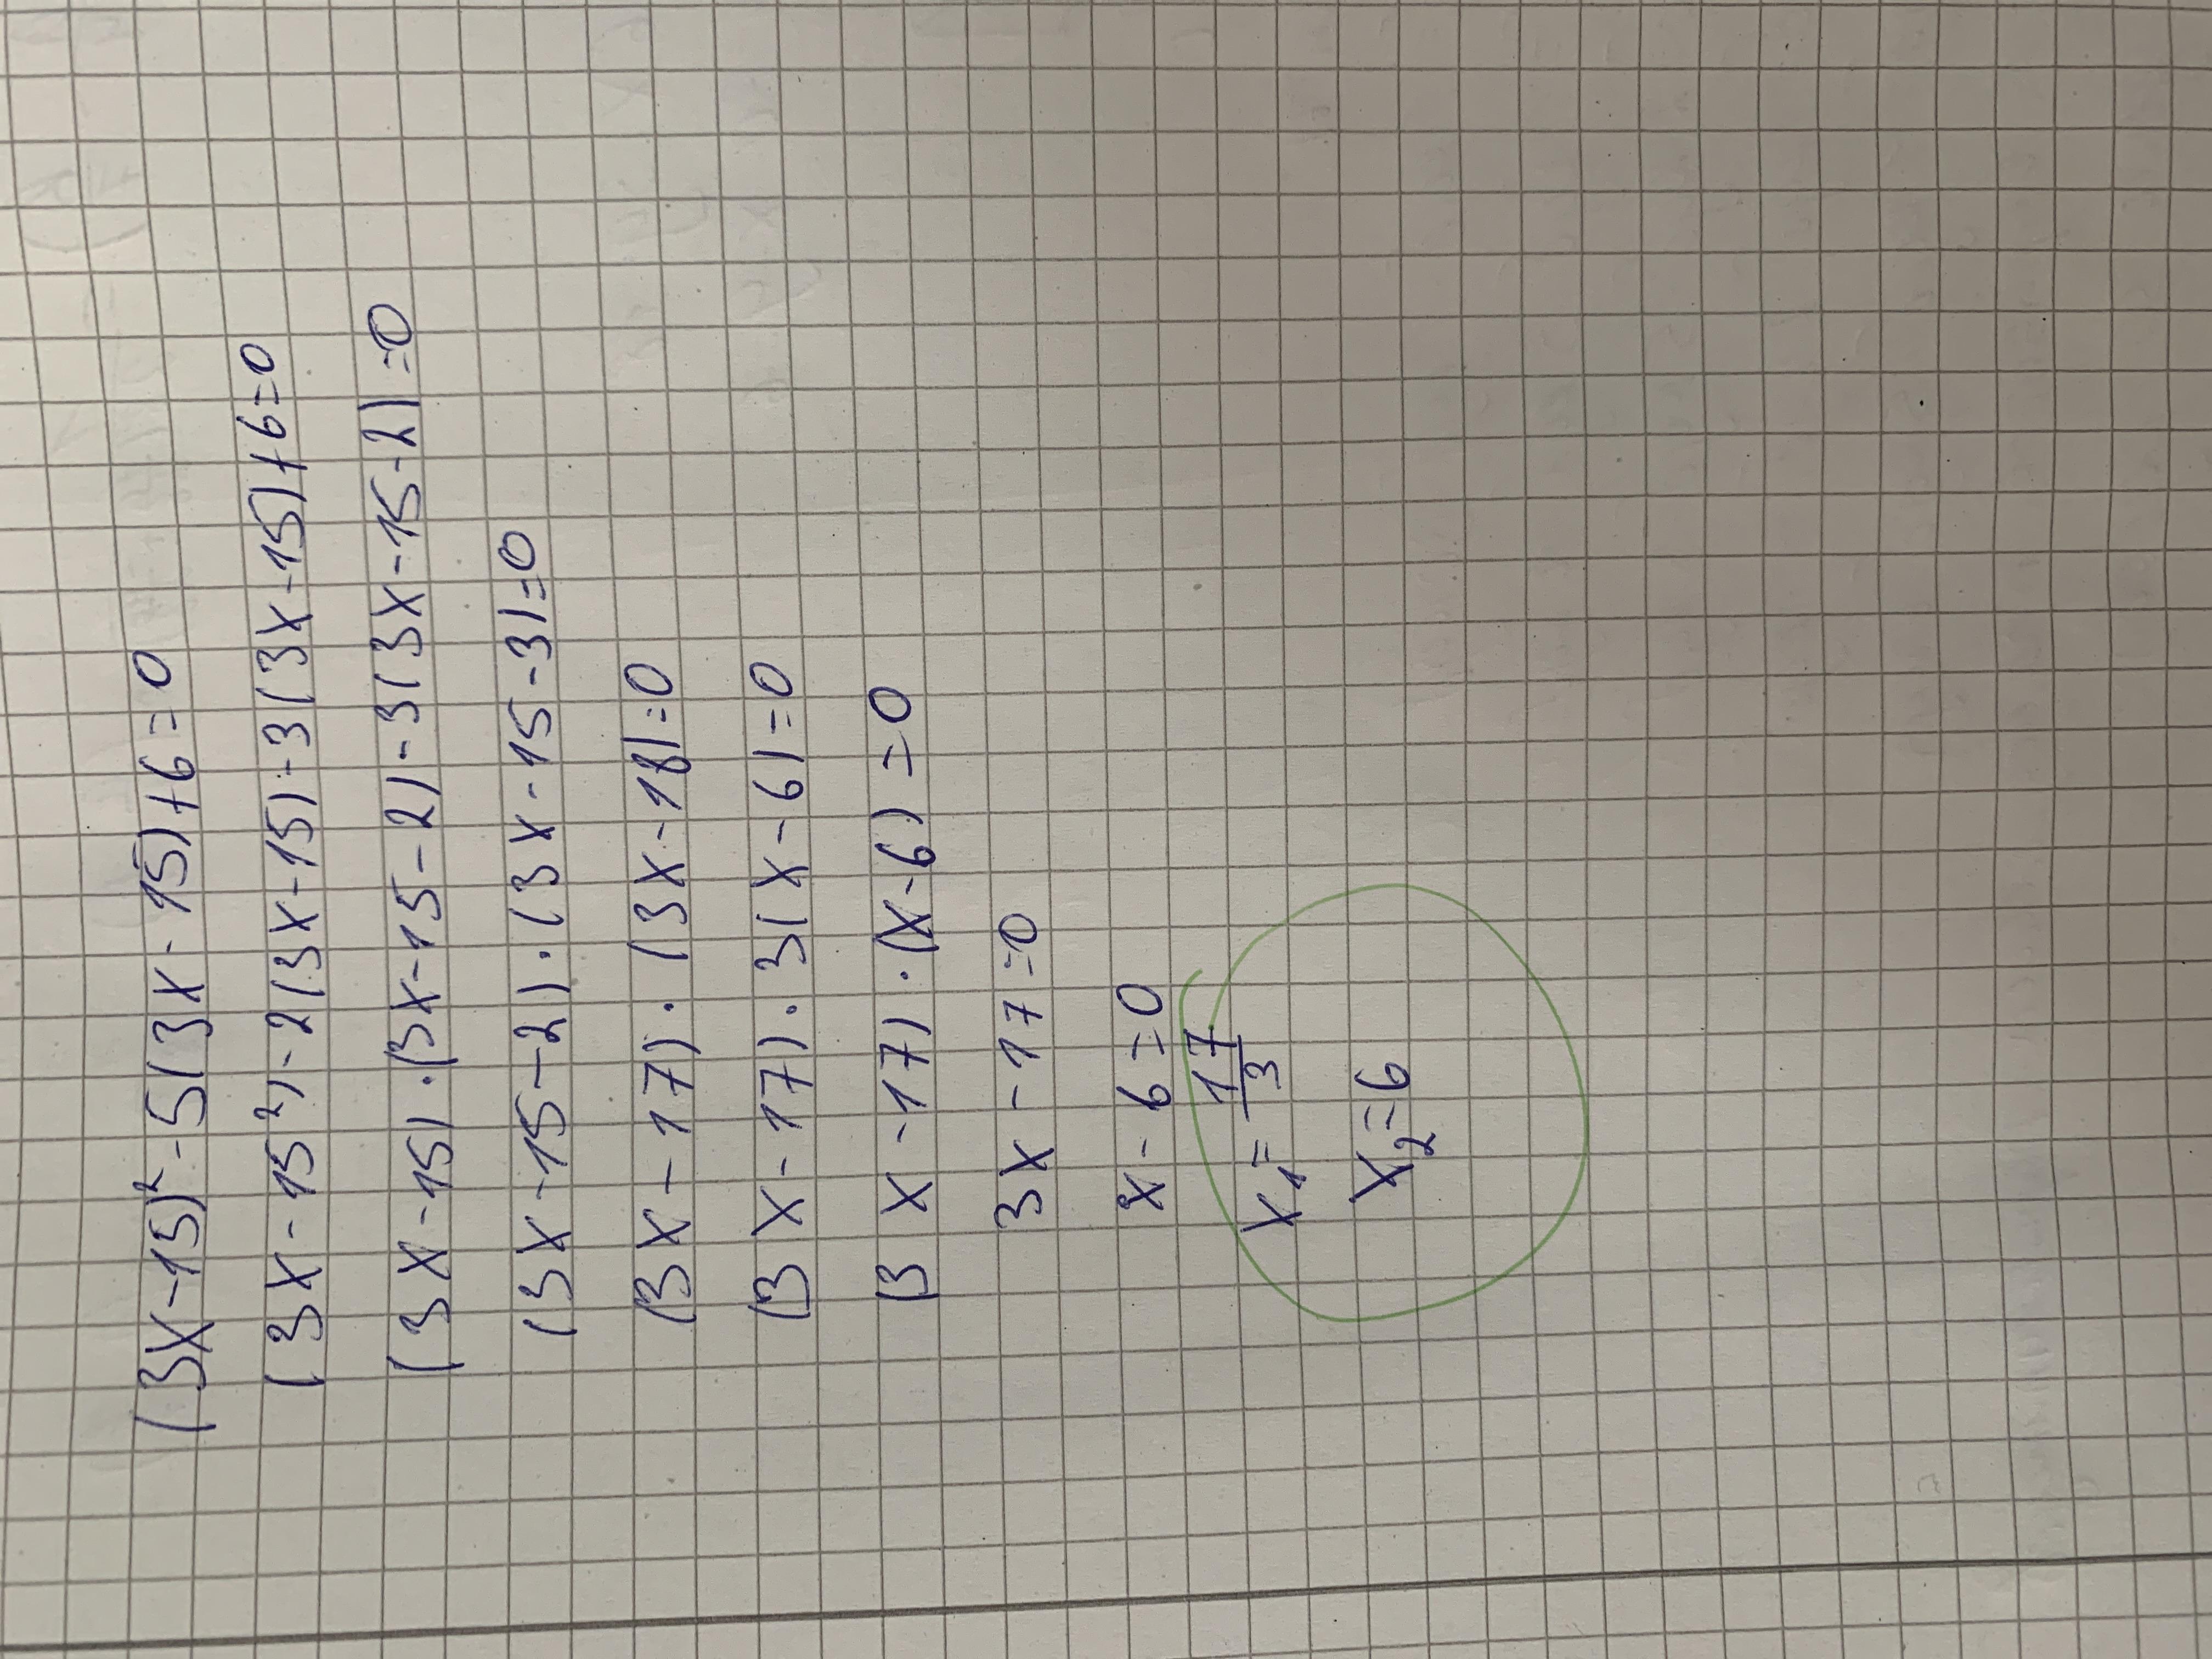 (3x-15)²-5(3x-15)+6=0
(3x-15²)-2(3x-15)-3(3x-15)+6=0
(3x-15)·(3x-15-2)-3(3x-15-2)=0
(3x-15-2)·(3x-15-3)=0
(3x-17)·(3x-18)=0
(3x-17)·3(x-6)=0
(3x-17)·(x-6)=0
3x-17=0
x-6=0
x₁=17/3
x₂=6